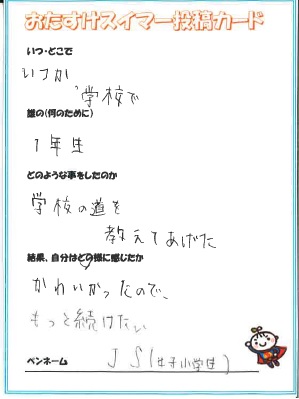 おたすけスイマー投稿カード
いつ・どこで
いつか
学校で
誰の(何のために)
1年生
どのような事をしたのか
学校の道を
教えてあげた
結果、自分はどの様に感じたか
かわいかったので、
もっと続けたい
ペンネーム
JS(女子小学生)